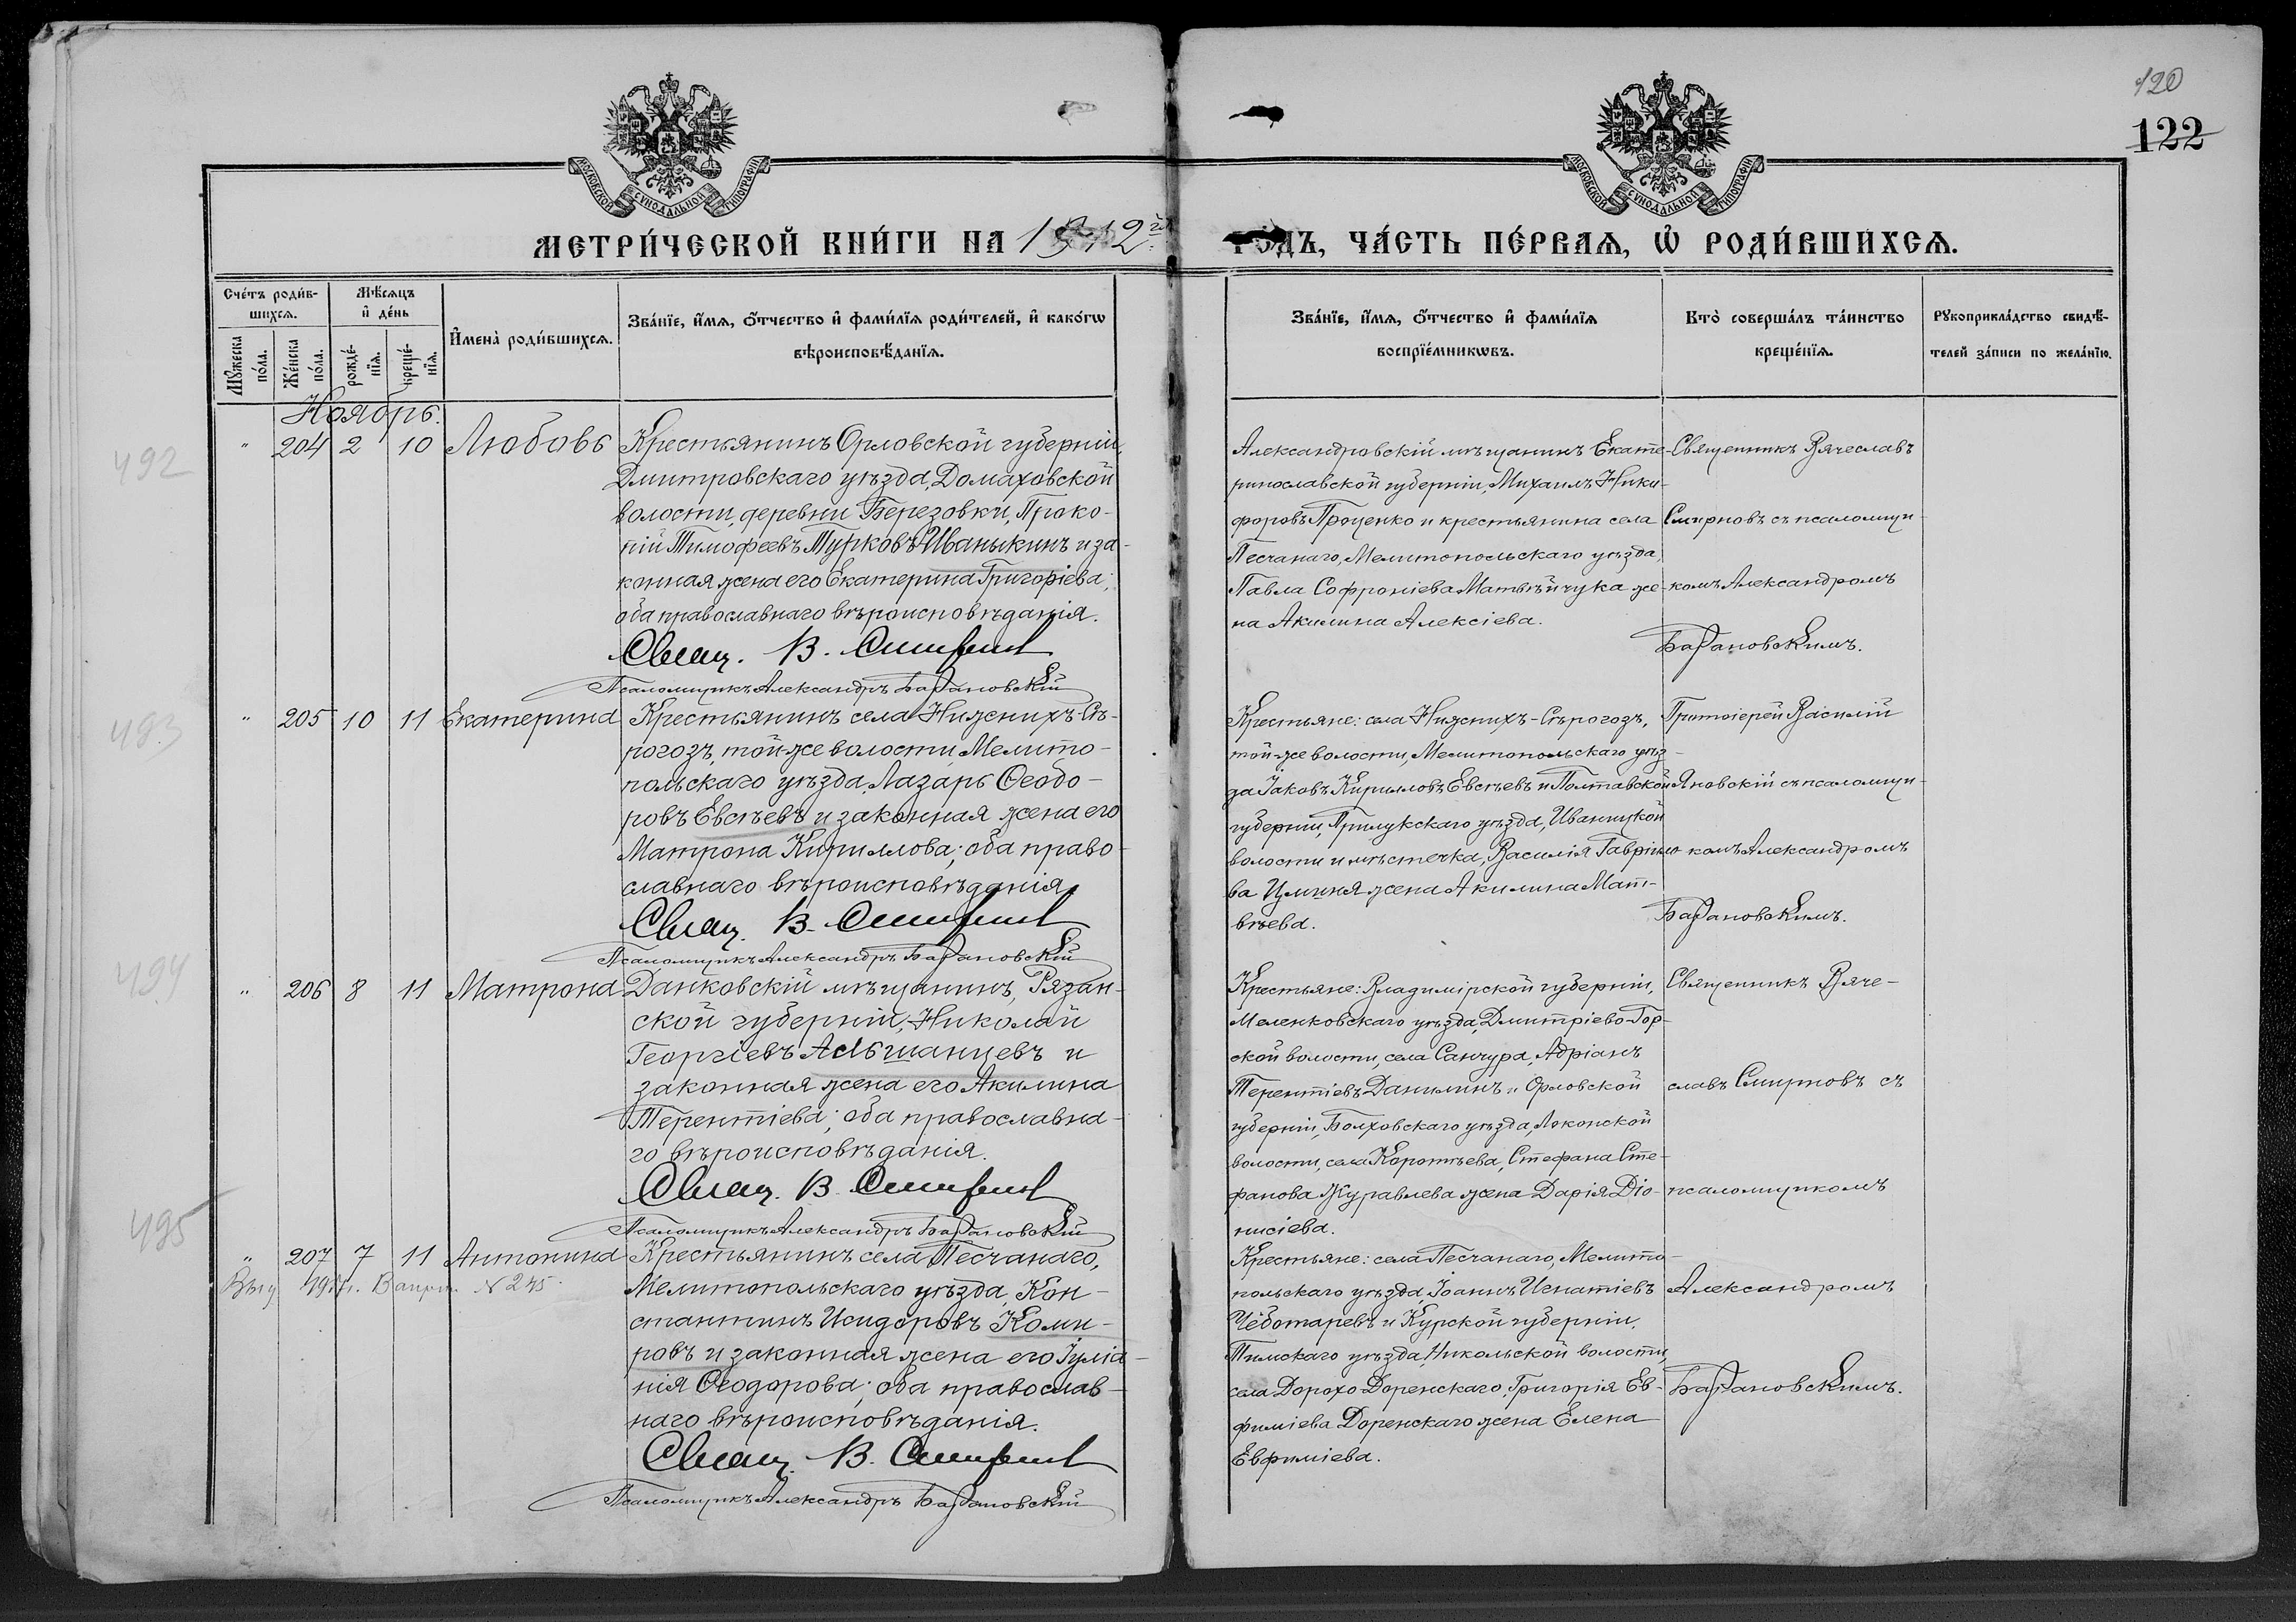 120
122
МОСКОВСКОЙ СѴНОДАЛЬНОЙ ТИПОГРАФІИ
МОСКОВСКОЙ СѴНОДАЛЬНОЙ ТИПОГРАФІИ
МЕТРИ́ЧЕСКОЙ КНИ́ГИ НА 1912й
ГОДЪ, ЧА́СТЬ ПЕ́РВАѦ, Ѽ РОДИ́ВШИХСѦ.
Сче́тъ роди́в-
шихсѧ.
Мѣ́сѧцъ
и҆ де́нь
Мꙋ́жеска по́ла.
Же́нска по́ла.
рожде́-нїѧ.
креще́-нїѧ.
И҆мена̀ роди́вшихсѧ.
Зва́нїе, и҆́мѧ, ѻ҆́тчество и҆ фами́лїѧ роди́телей, и҆ како́гѡ
вѣроисповѣ́данїѧ.
Зва́нїе, и҆́мѧ, ѻ҆́тчество и҆ фами́лїѧ
воспрїе́мникѡвъ.
Кто̀ соверша́лъ та́инство
креще́нїѧ.
Рꙋкоприкла́дство свидѣ́-
телей за́писи по жела́нїю.
Ноябрь.
492
" 204 2 10 Любовь
Крестьянинъ Орловской губерніи,
Дмитровскаго уѣзда, Домаховской
волости, деревни Березовки, Проко-
пій Тимофеевъ Турковъ Иваныкинъ и за-
конная жена его Екатерина Григоріева;
оба православнаго вѣроисповѣданія.
Свящ. В. Смирновъ
Псаломщикъ Александръ Барановскій
Александровскій мѣщанинъ Екате-
ринославской губерніи, Михаилъ Ники-
форовъ Проценко и крестьянина села
Песчанаго, Мелитопольскаго уѣзда,
Павла Софроніева Матвѣйчука же-
на Акилина Алексіева.
Священникъ Вячеславъ
Смирновъ съ псаломщи-
комъ Александромъ
Барановскимъ.
493
" 205 10 11 Екатерина
Крестьянинъ села Нижнихъ-Сѣ-
рогозъ, той-же волости Мелито-
польскаго уѣзда, Лазарь Ѳеодо-
ровъ Евсѣевъ и законная жена его
Матрона Кириллова; оба право-
славнаго вѣроисповѣданія.
Свящ. В. Смирновъ
Псаломщикъ Александръ Барановскій
Крестьяне: села Нижнихъ-Сѣрогозъ,
той-же волости, Мелитопольскаго уѣз-
да Іаковъ Кирилловъ Евсѣевъ и Полтавской
губерніи, Прилукскаго уѣзда, Иваницкой
волости и мѣстечка, Василія Гавріило-
ва жена Акилина Мат-
вѣева.
Протоіерей Василій
Яновскій съ псаломщи-
комъ Александромъ
Барановскимъ.
494
" 206 8 11 Матрона
Данковскій мѣщанинъ, Рязан-
ской губерніи, Николай
Георгіевъ Альшанцевъ и
законная жена его Акилина
Терентіева; оба православна-
го вѣроисповѣданія.
Свящ. В. Смирновъ
Псаломщикъ Александръ Барановскій
Крестьяне: Владимірской губерніи,
Меленковскаго уѣзда, Дмитріево-Гор-
ской волости, села Санчура, Адріанъ
Терентіевъ Данилинъ и Орловской
губерніи, Болховскаго уѣзда, Локонской
волости, села Коротѣева, Стефана Сте-
фанова Журавлева жена Дарія Діо-
нисіева.
Священникъ Вяче-
славъ Смирновъ съ
псаломщикомъ
Александромъ
Барановскимъ.
495
" 207 7 11 Антонина
N 245
Крестьянинъ села Песчанаго,
Мелитопольскаго уѣзда, Кон-
стантинъ Исидоровъ Коми-
ровъ и законная жена его Іуліа-
нія Ѳеодорова; оба православ-
наго вѣроисповѣданія.
Свящ. В. Смирновъ
Псаломщикъ Александръ Барановскій
Крестьяне: села Песчанаго, Мелито-
польскаго уѣзда, Іоаннъ Игнатіевъ
Чеботаревъ и Курской губерніи,
Тимскаго уѣзда, Никольской волости,
села Дорохо-Доренскаго, Григорія Ев-
фиміева Доренскаго жена Елена
Евфиміева.